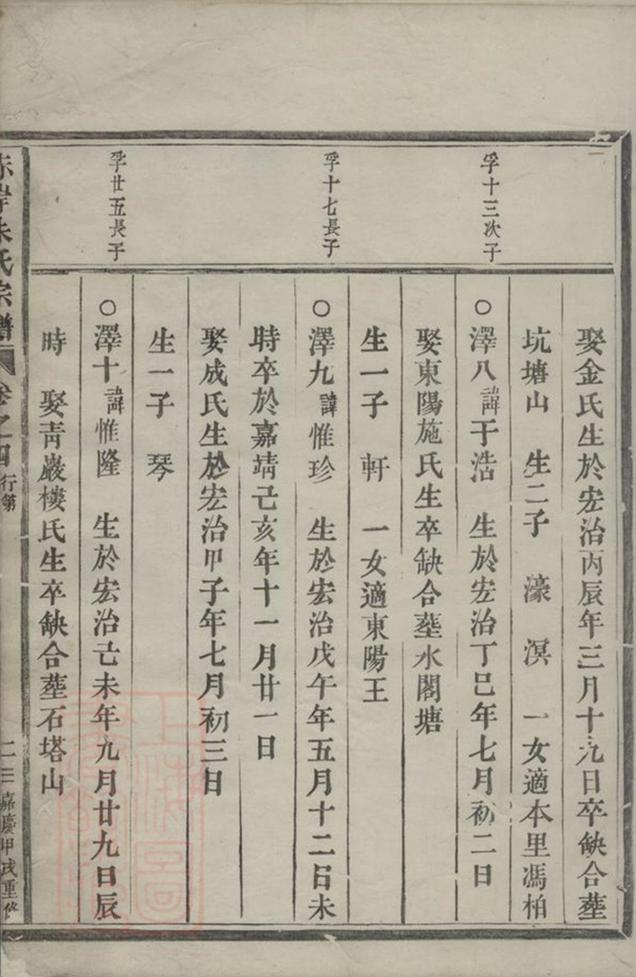 孚十三次子
孚十七長子
孚廿五長子
娶金氏生於宏治丙辰年三月十九日卒缺合塟
坑塘山 生二子 濠 溟 一女適本里馮柏
○澤八諱于浩 生於宏治丁巳年七月初二日
娶東陽施氏生卒缺合塟水閣塘
生一子 軒 一女適東陽王
○澤九諱惟珍 生於宏治戊午年五月十二日未
時卒於嘉靖己亥年十一月廿一日
娶成氏生於宏治甲子年七月初三日
生一子 琴
○澤十諱惟隆 生於宏治己未年九月廿九日辰
時 娶青巖樓氏生卒缺合塟石塔山
赤岸朱氏宗譜 卷之四 行第 二三 嘉慶甲戌重修